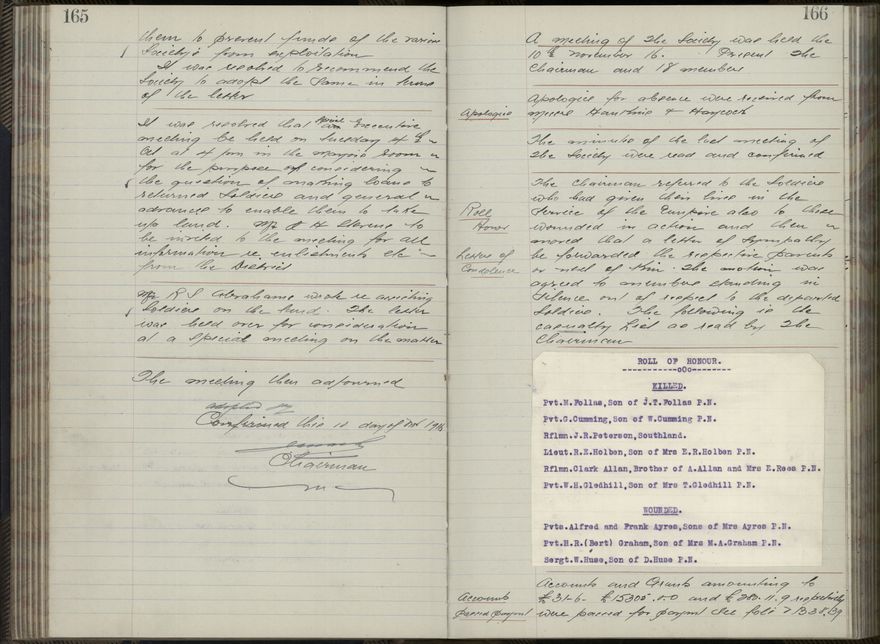 165
them to prevent funds of the various
Society's from exploitation
It was resolved to recommend the
Society to adopt the same in terms
of the letter
It was resolved that an Special Executive
meeting be held on Tuesday 4th
Oct at 4 pm in the Mayors Room
for the purpose of considering
the question of making loans to
returned Soldiers and general
advances to enable them to take
up land. Mr H Sterne to
be invited to the meeting for all
information re enlistments etc
from the District
Mr R S Abrahams wrote re assisting
Soldiers on the land. The letter
was held over for consideration
at a special meeting on the matter
The meeting then adjourned
adopted
Confirmed this 10 day of Nov 1916
Chairman
166
A meeting of the Society was held the
10th November 16. Present the
Chairman and 18 members
Apologies
Apologies for absence were received from
Messrs Hawkins & Haycock
The minutes of the last meeting of
the Society were read and confirmed
Roll
Honor
Letter of
Condolence
The Chairman referred to the Soldiers
who had given their lives in the
Service of the Empire also to those
wounded in action and then
moved that a letter of Sympathy
be forwarded the respective parents
or next of Kin. The motion was
agreed to members standing in
Silence out of respect to the departed
Soldiers. The following is the
casualty list as read by the
Chairman
ROLL OF HONOUR.
----------o0o----------
KILLED.
Pvt.M.Follas,Son of J.T.Follas P.N.
Pvt.G.Cumming,Son of W.Cumming P.N.
Rflmn.J.R.Peterson,Southland.
Lieut.R.E.Holben,Son of Mrs E.R.Holben P.N.
Rflmn.Clark Allan,Brother of A.Allan and Mrs E.Rees P.N.
Pvt.W.H.Gledhill,Son of Mrs T.Gledhill P.N.
WOUNDED.
Pvts.Alfred and Frank Ayres,Sons of Mrs Ayres P.N.
Pvt.H.R.(Bert) Graham,Son of Mrs M.A.Graham P.N.
Sergt.W.Huse,Son of D.Huse P.N.
Accounts
passed payment
Accounts and Grants amounting to
respectively
were passed for payment See folio